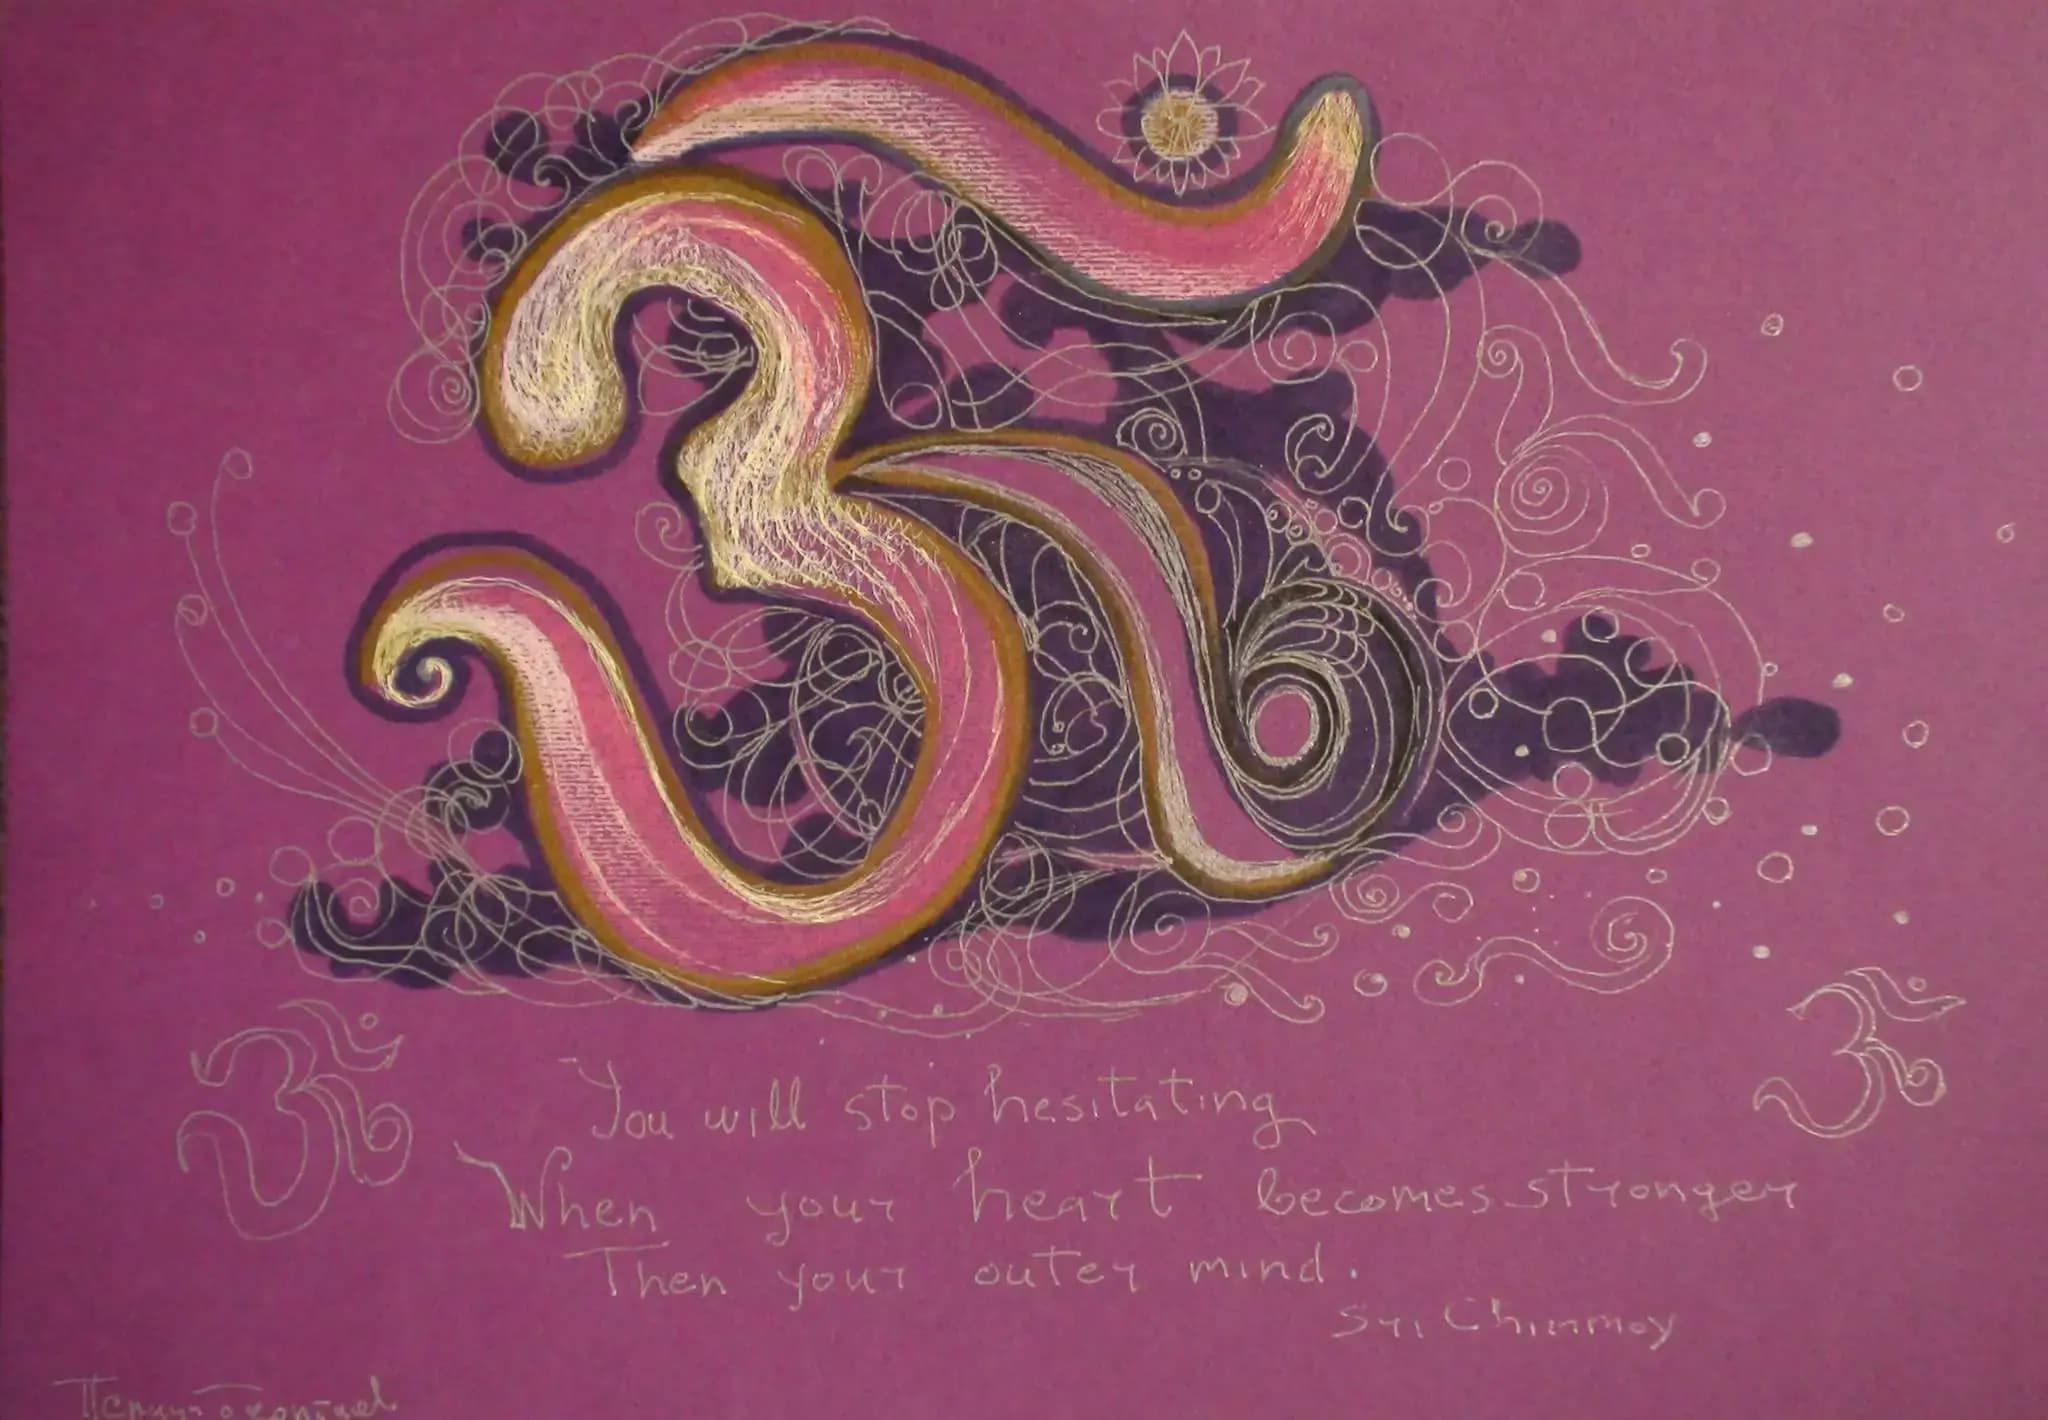 ॐ
ॐ
ॐ
You will stop hesitating
When your heart becomes stronger
Then your outer mind.
Sri Chinmoy